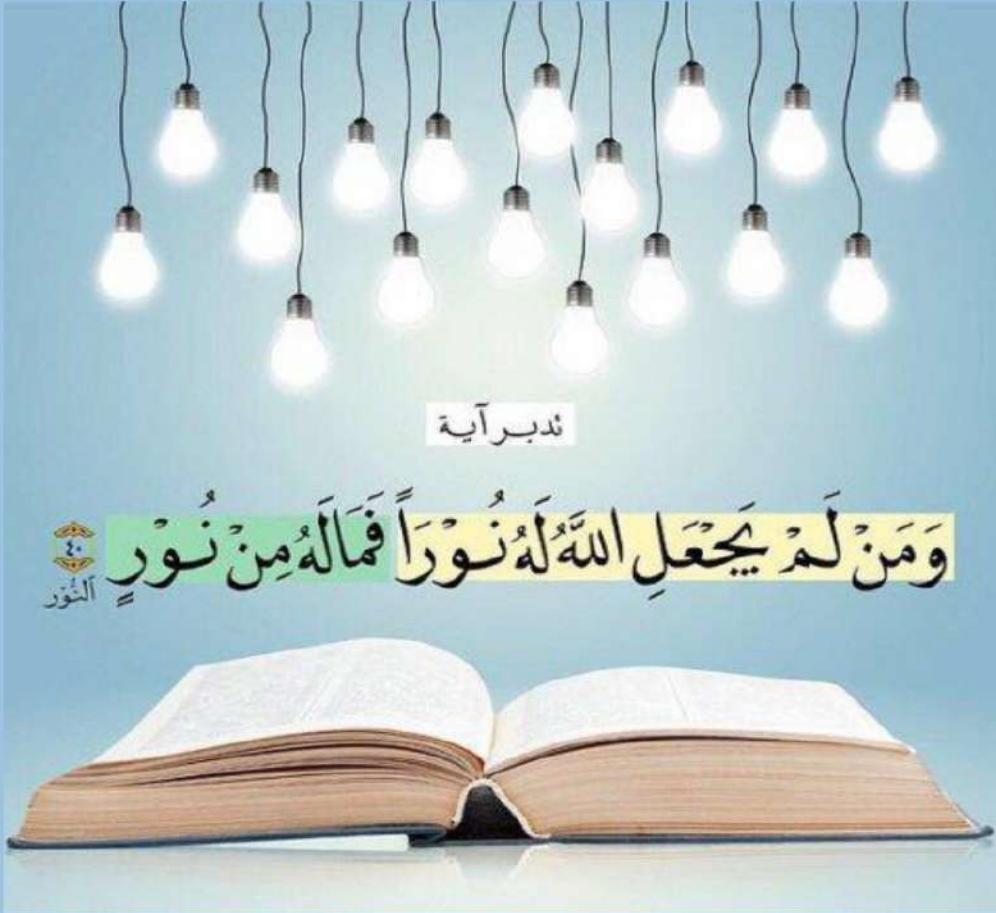 تدبر آية
وَمَنْ لَمْ يَجْعَلِ اللَّهُ لَهُ نُوْرَاً فَمَالَهُ مِنْ نُوْرٍ ٤٠
اَلنُّوْر